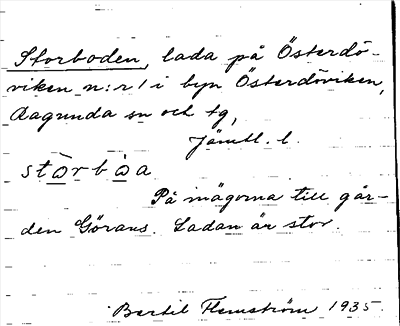 Storboden, lada på Österdö-
viken n:r 1 i byn Österdöviken,
Ragunda sn och tg,
Jämtl. l.
stòrbòa
På mägorna till går-
den Görans. Ladan är stor.
Bertil Flemström 1935.